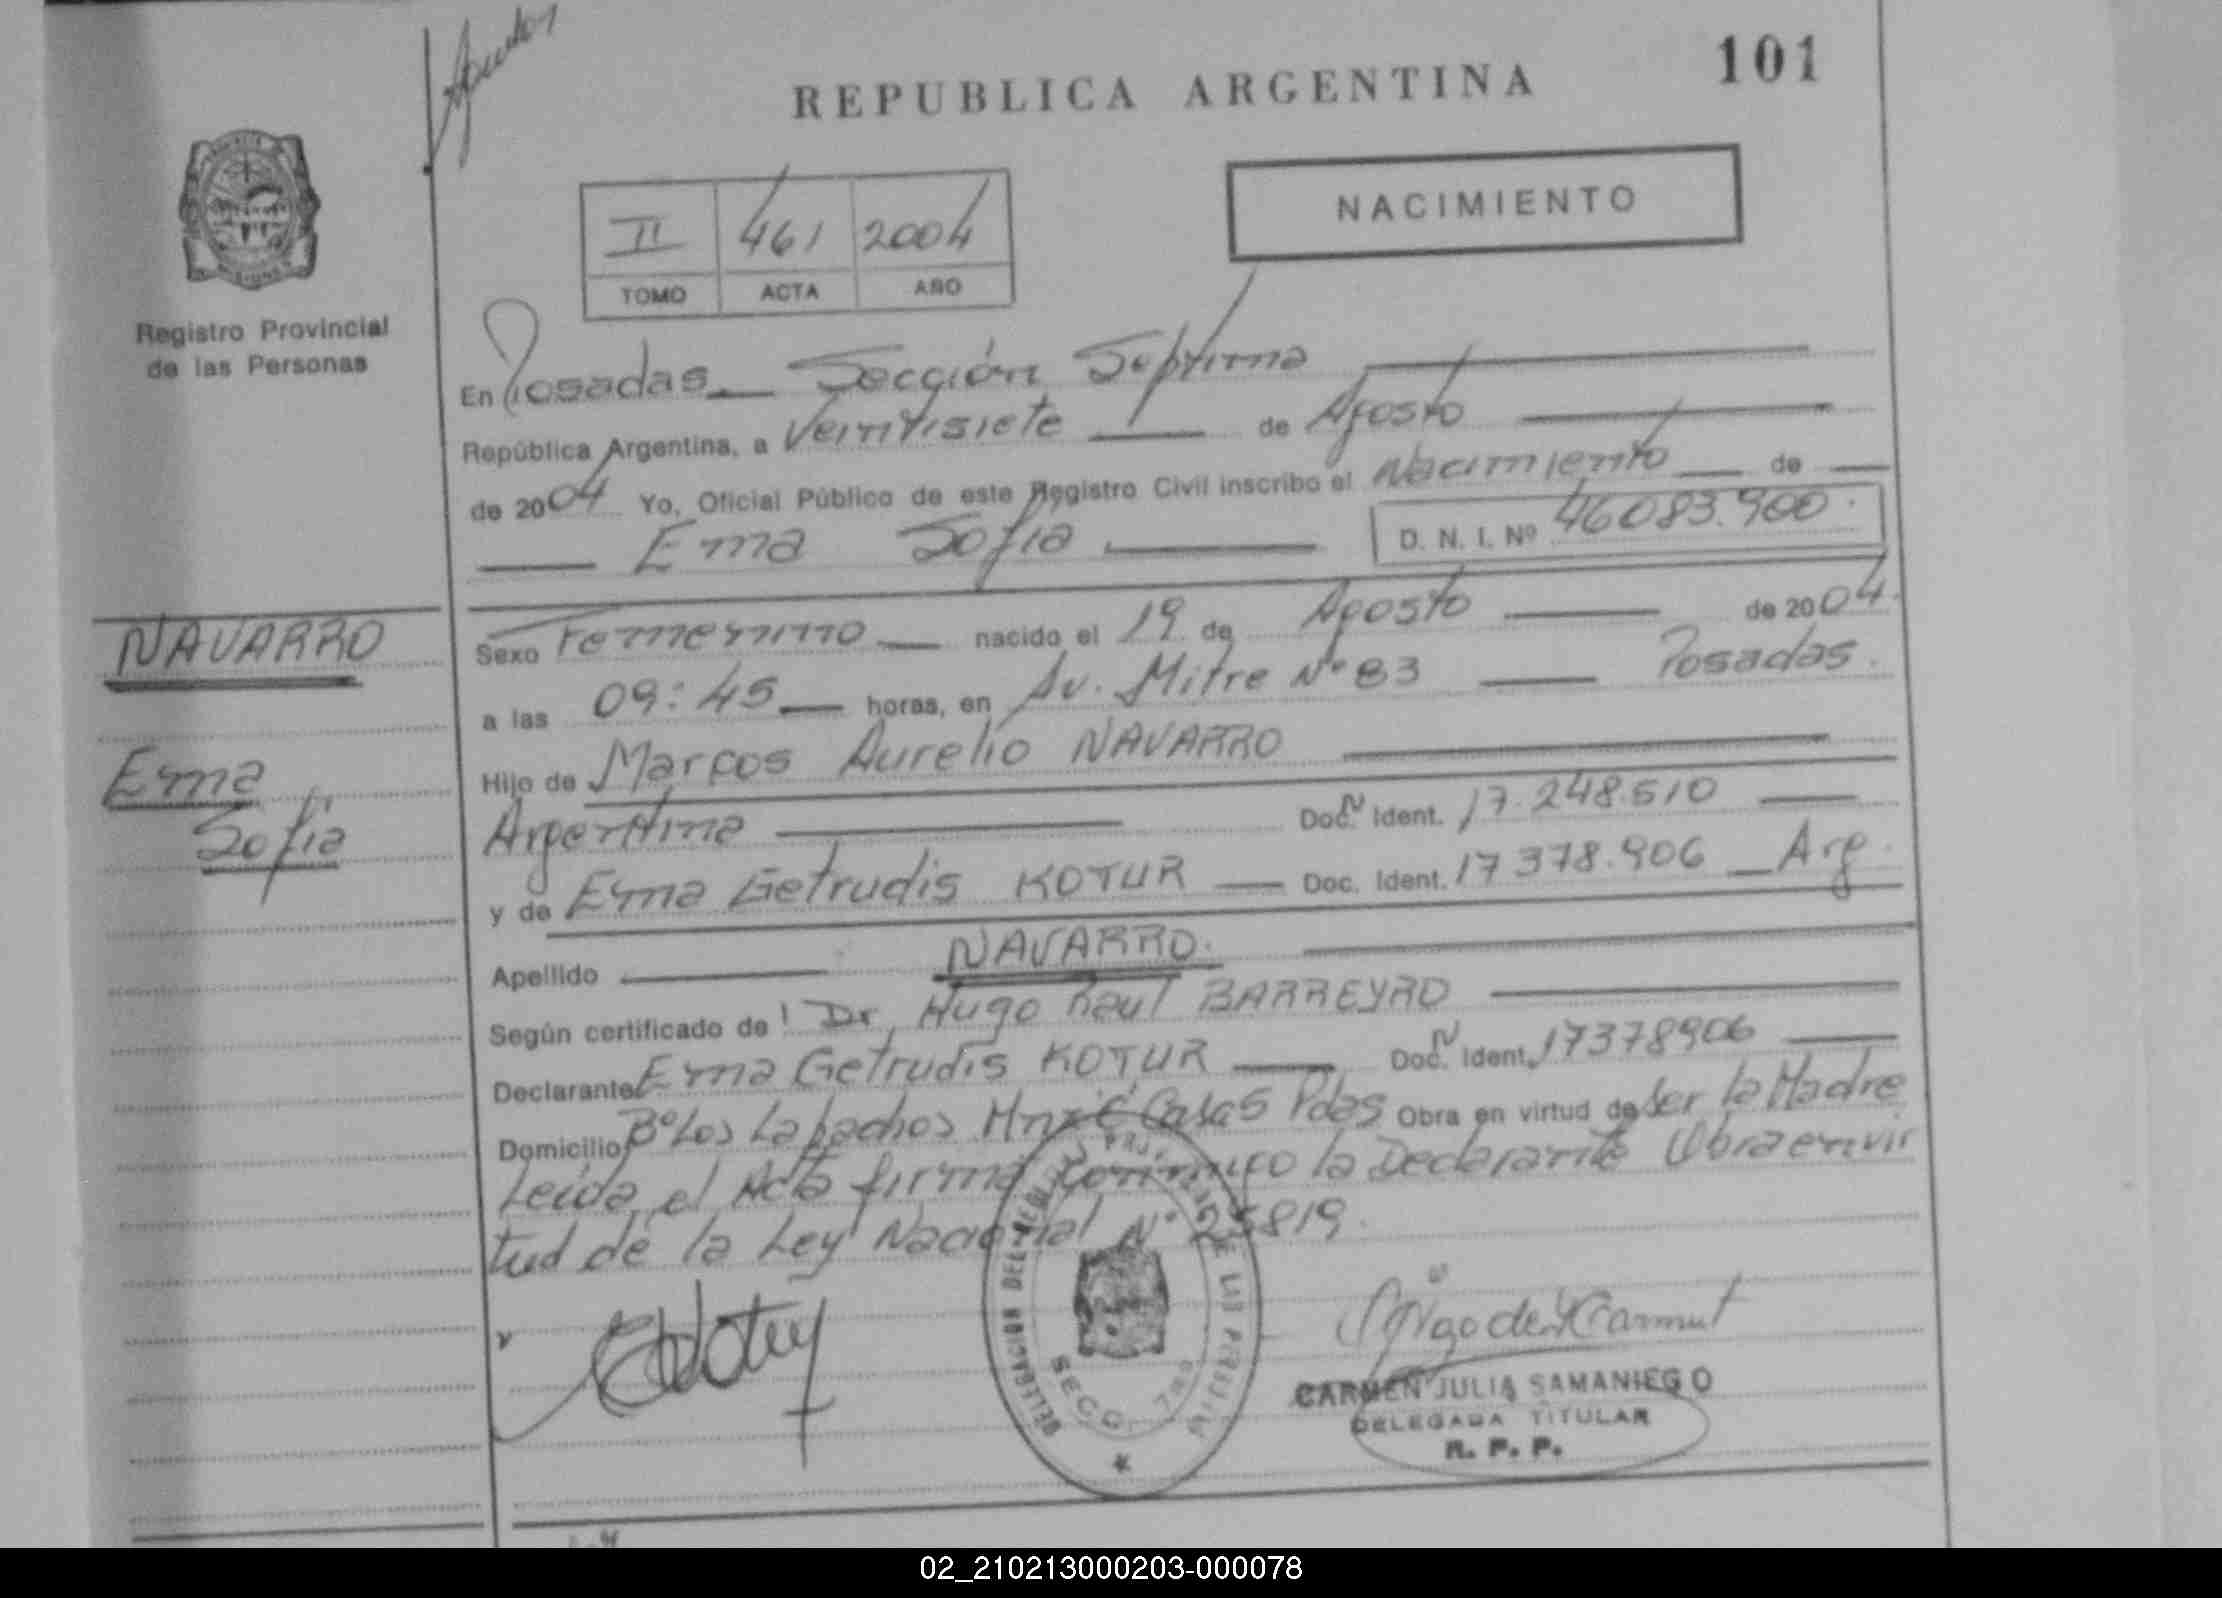 REPUBLICA ARGENTINA
101
NACIMIENTO
II 461 2004
TOMO ACTA AÑO
Registro Provincial
de las Personas
En Posadas Sección Septima
República Argentina, a Veintisiete de Agosto
de 2004 Yo, Oficial Público de este Registro Civil inscribo el Nacimiento de
Ema Sofia D. N. I. Nº 46083.900.
NAVARRO
Ema
Sofia
Sexo Femenino nacido el 19 de Agosto de 2004.
a las 09:45 horas, en Av. Mitre Nº 83 Posadas.
Hijo de Marcos Aurelio NAVARRO
Argentina Doc. N Ident. 17.248.510
y de Ema Getrudis KOTUR Doc. Ident. 17378.906 Arg.
Apellido NAVARRO.
Según certificado de ! Dr. Hugo Raul BARREYRO
Declarante Ema Getrudis KOTUR Doc. N Ident. 17378906
Domicilio Bº Los Lapachos Casas Pdas Obra en virtud de Ser la Madre
Leida el Acta firma Conmigo la Declarante Obra en vir
tud de la Ley Nacional Nº 25819.
DELEGACION DEL REGISTRO PROVINCIAL DE LAS PERSONAS
SECC. 7ma
CARMEN JULIA SAMANIEGO
DELEGADA TITULAR
R. P. P.
02_210213000203-000078